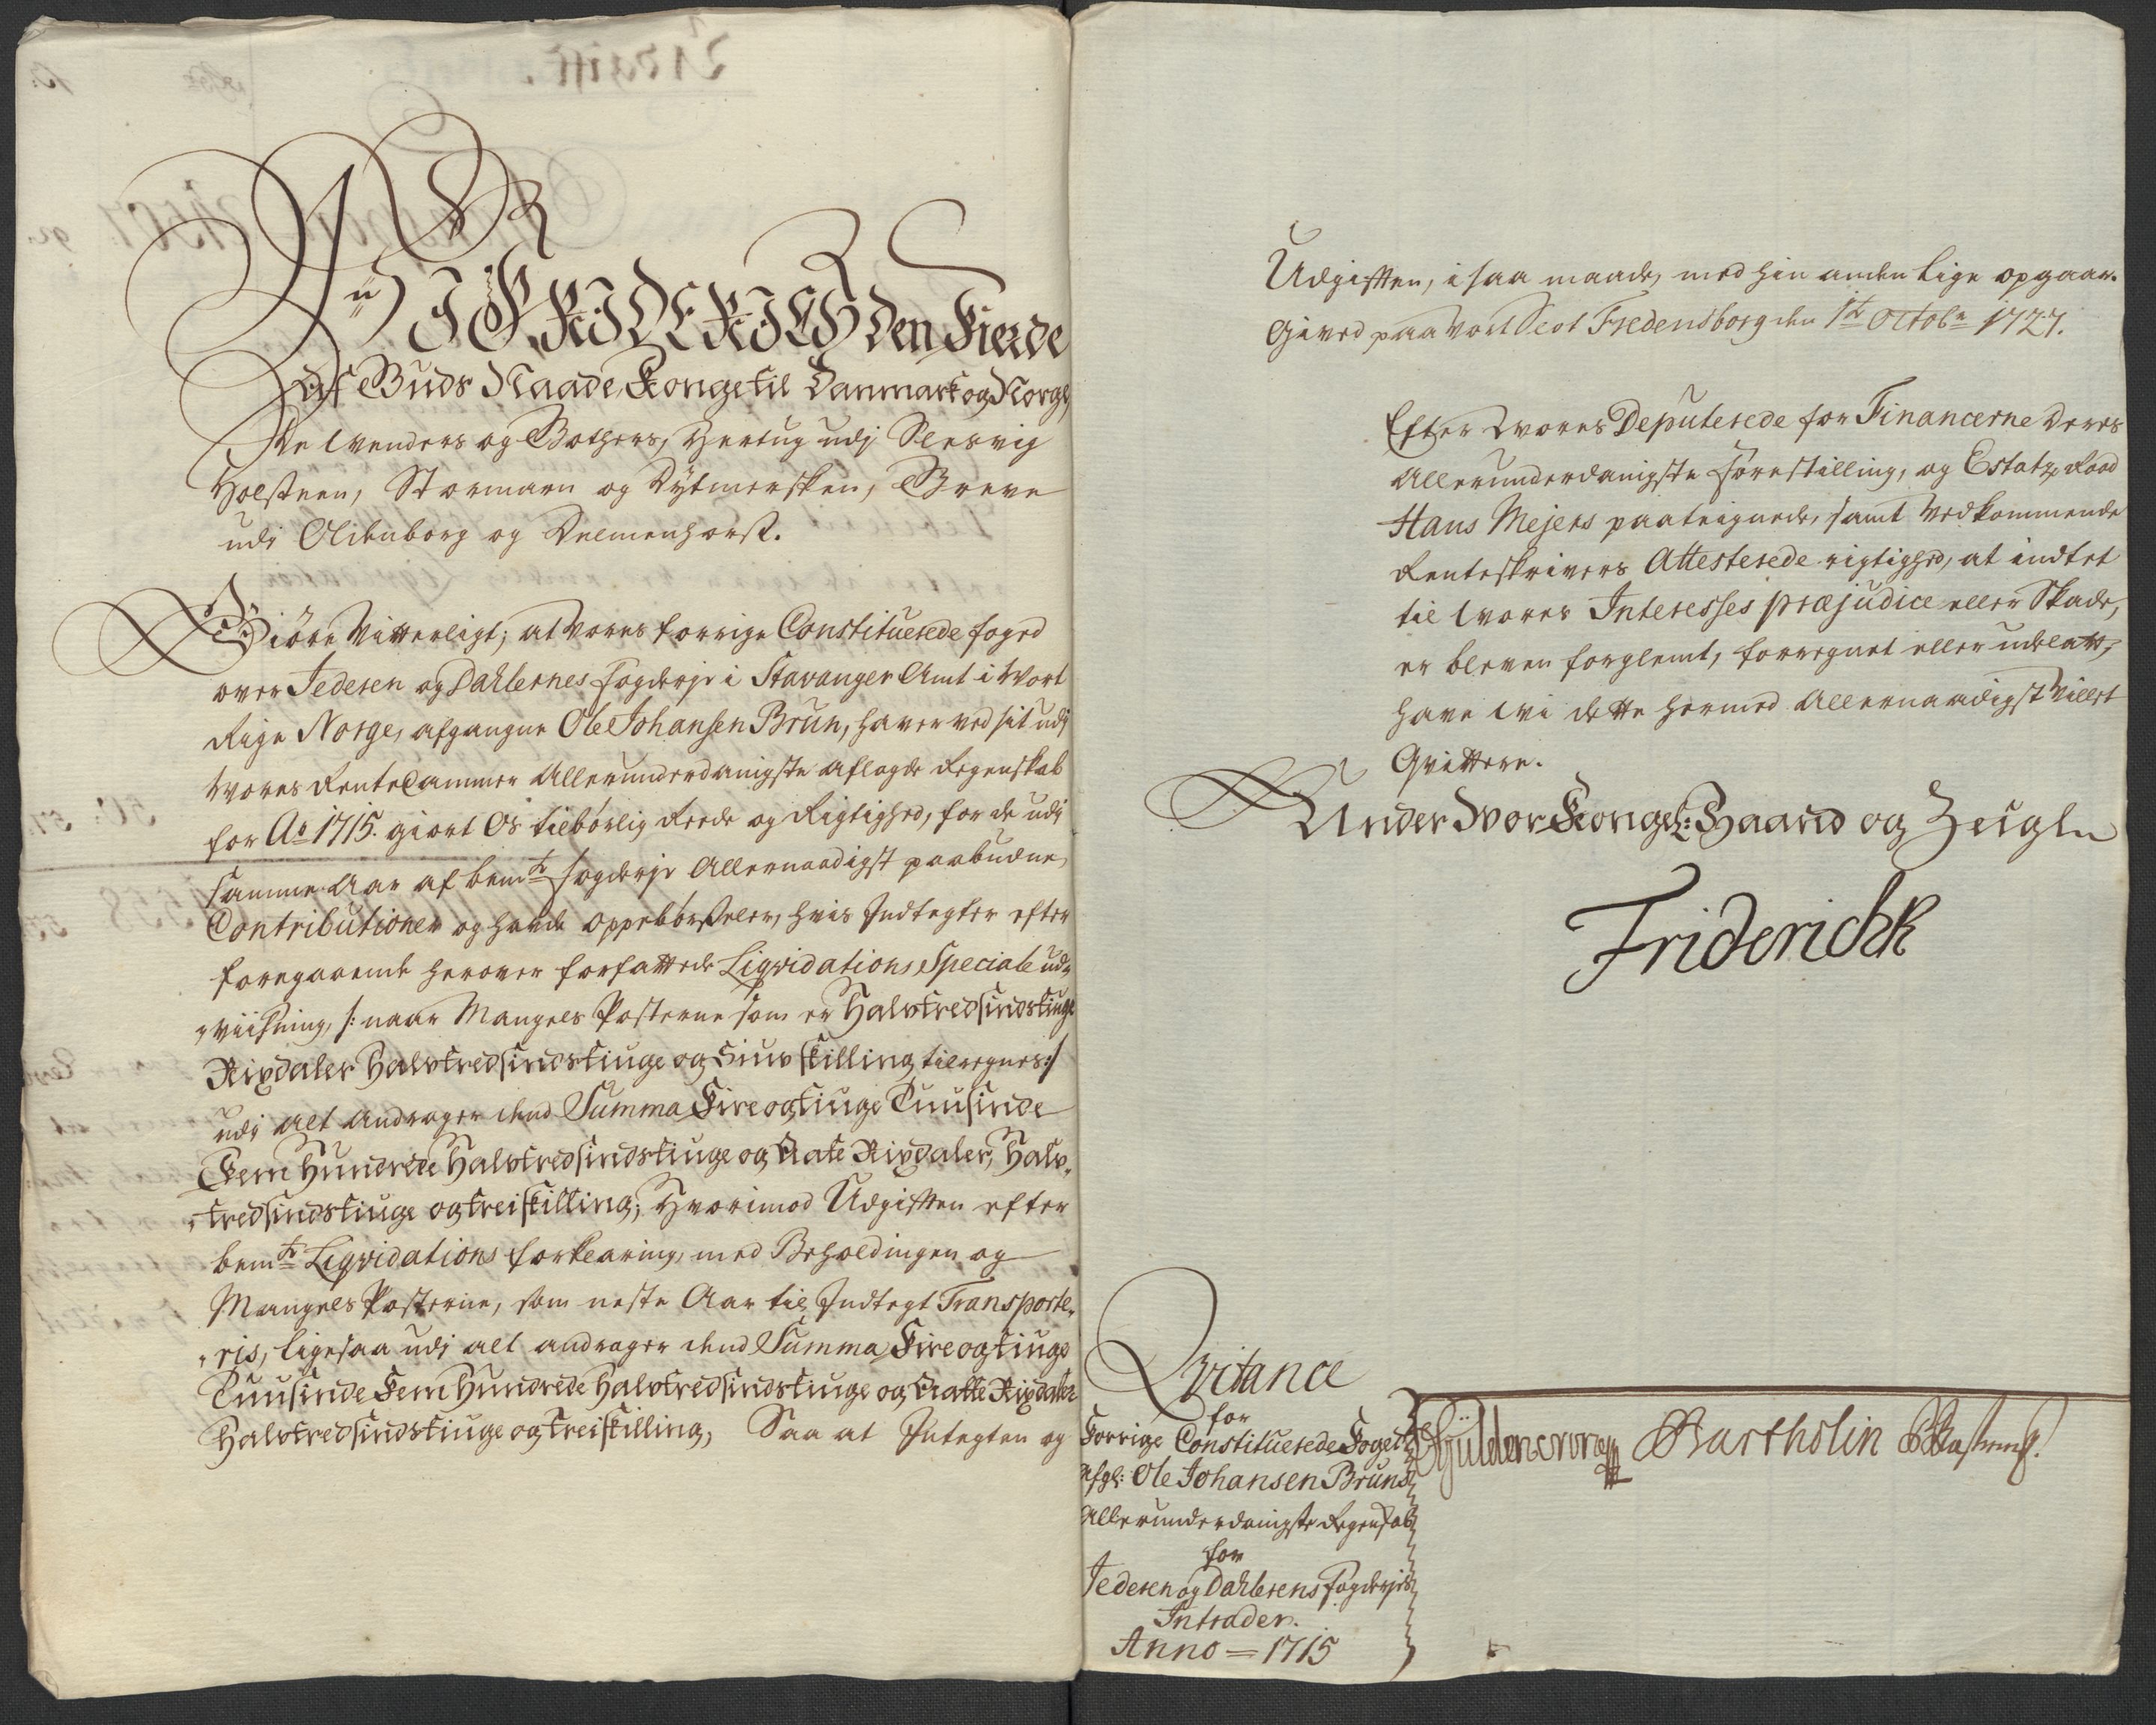 Wii FRIDERICH den Fierde
af Guds Naade, Konge til Danmark og Norge,
De Wenders og Gothers, Hertug udj Slesvig
Holsteen, Stormarn og Dytmersken, Greve
udi Oldenborg og Delmenhorst.
Giøre Vitterligt; at Vores forrige Constituerede foged
over Jederen og Dahlernes fogderje i Stavanger Amt i Vort
Rige Norge, afgangne Ole Johansen Brun, haver ved sit udj
Vores Rente Cammer Allerunderdanigste aflagde Regenskab
for Ao 1715. giort Os tilbørlig Reede og Rigtighed, for de udi
samme Aar af bemte fogderje Allernaadigst paabudne,
Contributioner og havde oppebørseler, hvis Indtegter efter
foregaaende herover forfattede Liqvidations Speciale ud„
„viisning, /: naar Mangels Posterne som er Halvtredsindstiuge
Rixdaler Halvtredsindstiuge og Siuv skilling tilregnes :/
udi alt andrager dend Summa Fire og tiuge Tuusinde
Fem Hundrede Halvtredsindstiuge og Aate Rixdaler, Halv„
„tredsindstiuge og trei skilling; Hvorimod Udgiften efter
bemte Liqvidations forklaring, med Beholdingen og
Mangels Posterne, som neste Aar til Indtegt Transporte„
„ris, ligesaa udj alt andrager dend Summa Fire og tiuge
Tuusinde Fem Hundrede Halvtredsindstiuge og Aatte Rixdaler
Halvtredsindstiuge og trei skilling, Saa at Integten og
Udgiften, i saa maade, med hin anden lige opgaar.
Gived paa Vort Slot Fredensborg den 1te Octobr 1727.
Efter Vores Deputerede for Financerne Deres
Allerunderdanigste forestilling, og Estatz Raad
Hans Mejers paategnede, samt Vedkommende
Renteskrivers Attesterede rigtighed, at indtet
til Vores Interesses præjudice eller Skade,
er bleven forglemt, forregnet eller udelatt,
have Wi dette hermed Allernaadigst Villet
Qvittere.
Under Vor Kongel: Haand og Zeigl
Friderich R
Qvitance
for
Forrige Constituerede Foged
Afgl: Ole Johansen Bruns
Allerunderdanigste Regenskab
for
Jederen og Dahlerens fogderjes
Intrader.
Anno = 1715
Güldencrone Bartholin